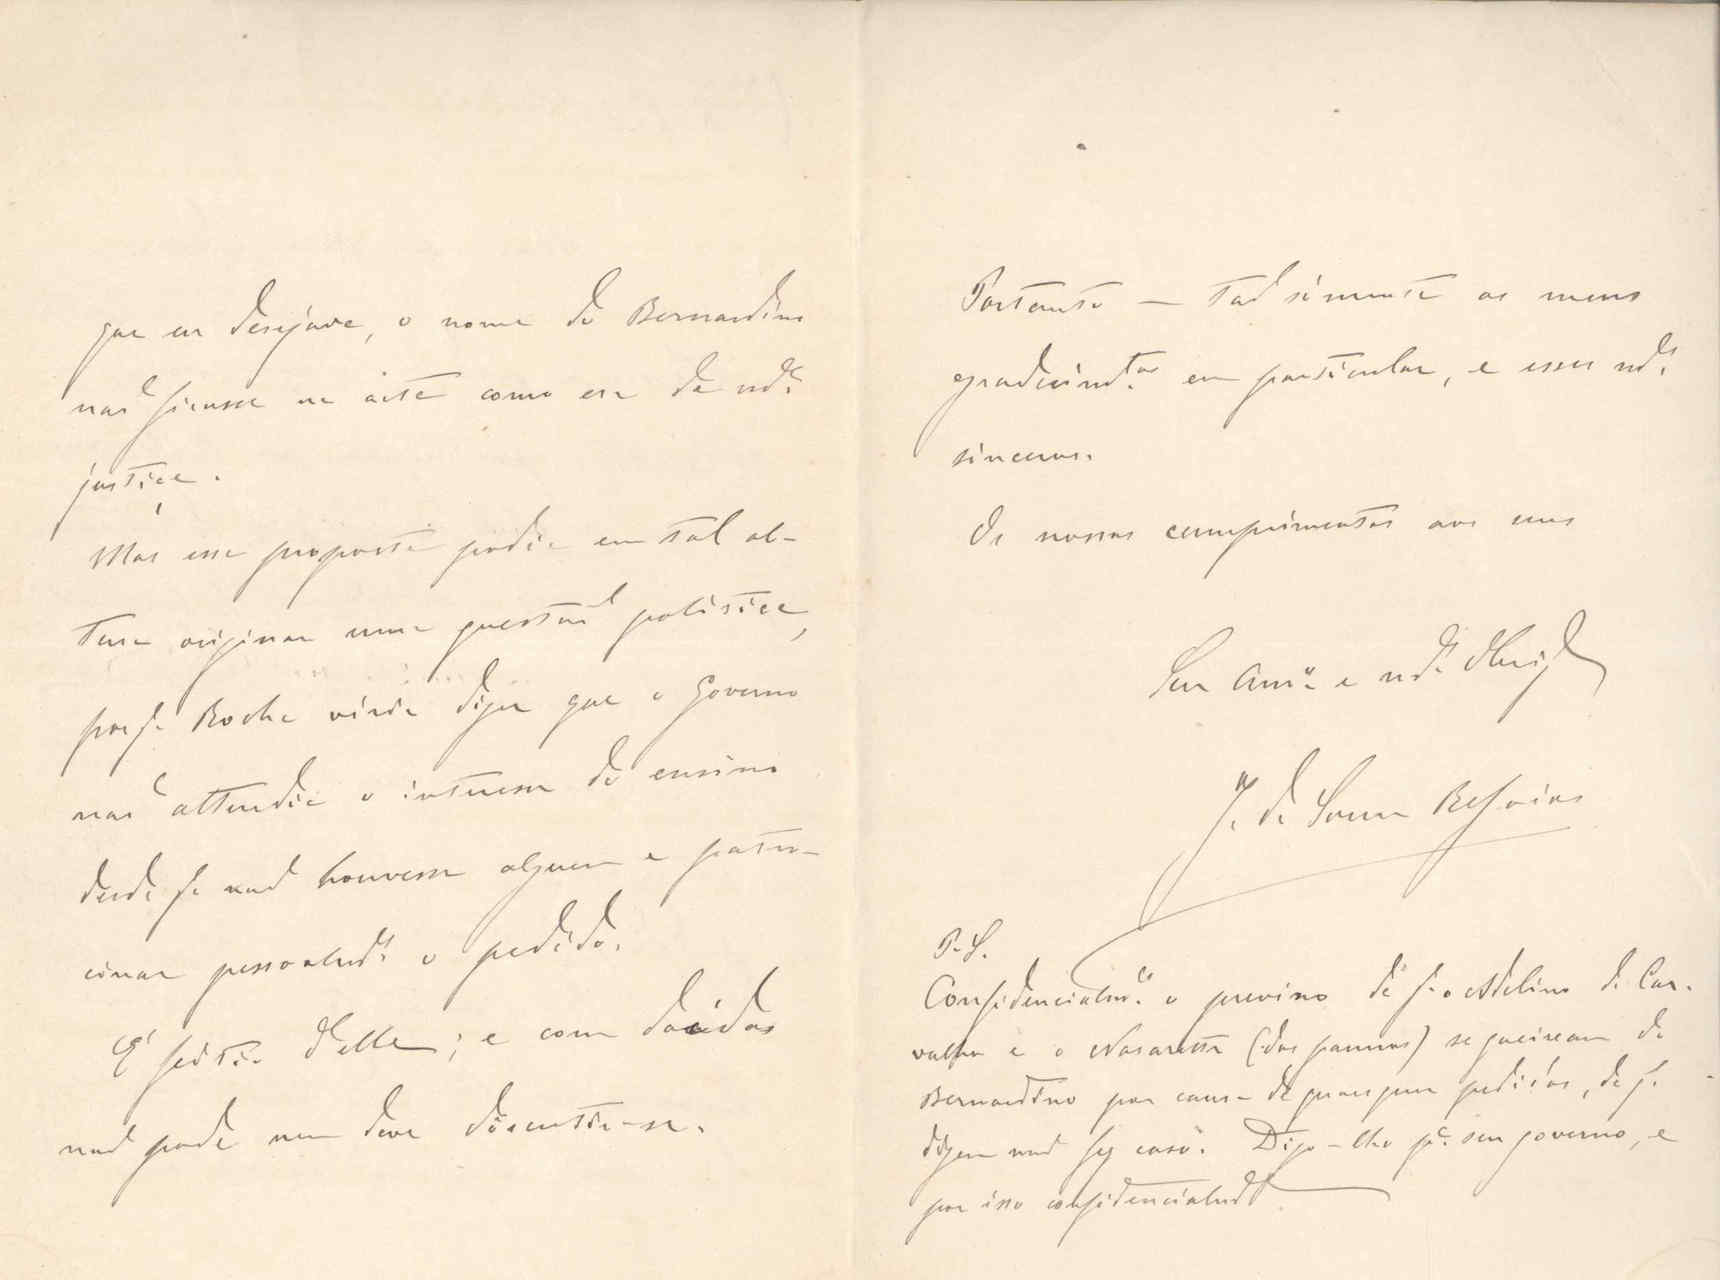 que eu desejava, o nome do Bernardino
não ficasse na acta como era de
justiça.
Mas essa proposta podia em tal al-
tura originar uma questão politica,
Rocha viria dizer que o governo
não attendia o interesse do ensino
desde q. não houvesse alguem a patro-
cinar pessoalmte o pedido.
É d'elle; e com doidos
não pode nem deve discutir-se.
Portanto — tão sómente os meus
agradecimtos em particular, e esses
sinceros.
Os nossos cumprimentos aos seus
Seu Amo e Obrigdo
J. de Sousa Refoios
P.S.
Confidencialme o previno de q. o Adelino de Car-
valho e o Nasareth (das pannos) se queixam do
Bernardino por causa de quaesquer pedidos, de q.
dizem não fez caso. Digo-lho pa seu governo, e
por isso confidencialmte